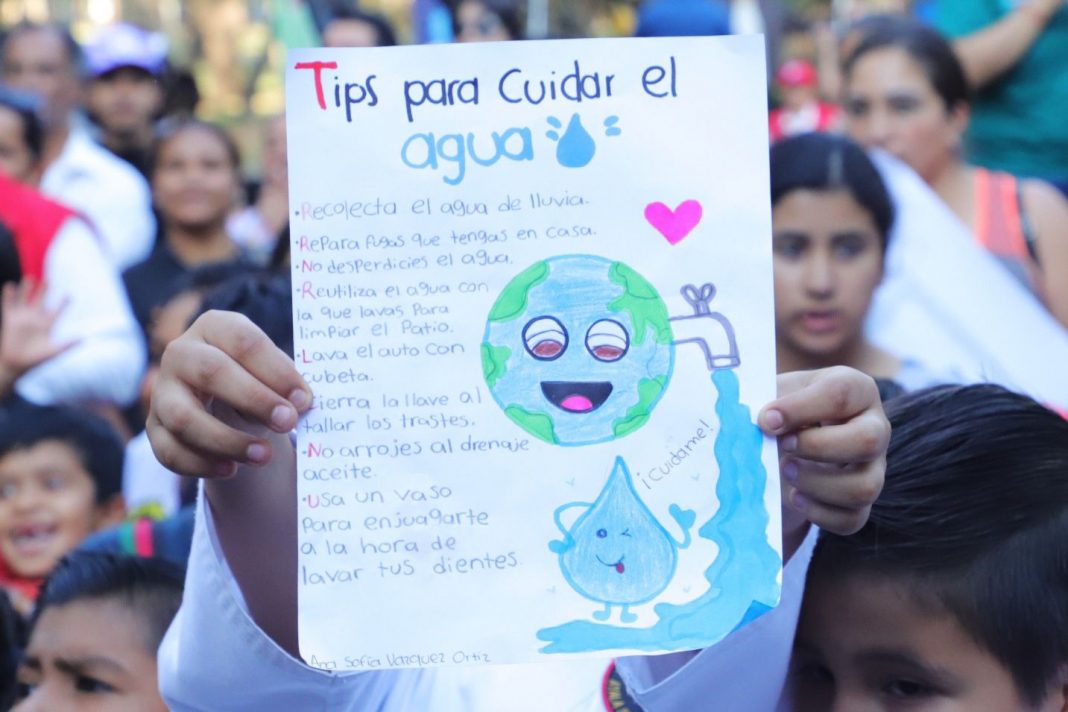 Tips para cuidar el
agua
·Recolecta el agua de lluvia.
·Repara fugas que tengas en casa.
·No desperdicies el agua.
·Reutiliza el agua con
la que lavas para
limpiar el patio.
·Lava el auto con
cubeta.
Cierra la llave al
tallar los trastes.
·No arrojes al drenaje
aceite.
·Usa un vaso
para enjuagarte
a la hora de
lavar tus dientes.
¡Cuidame!
Ana Sofía Vazquez Ortiz